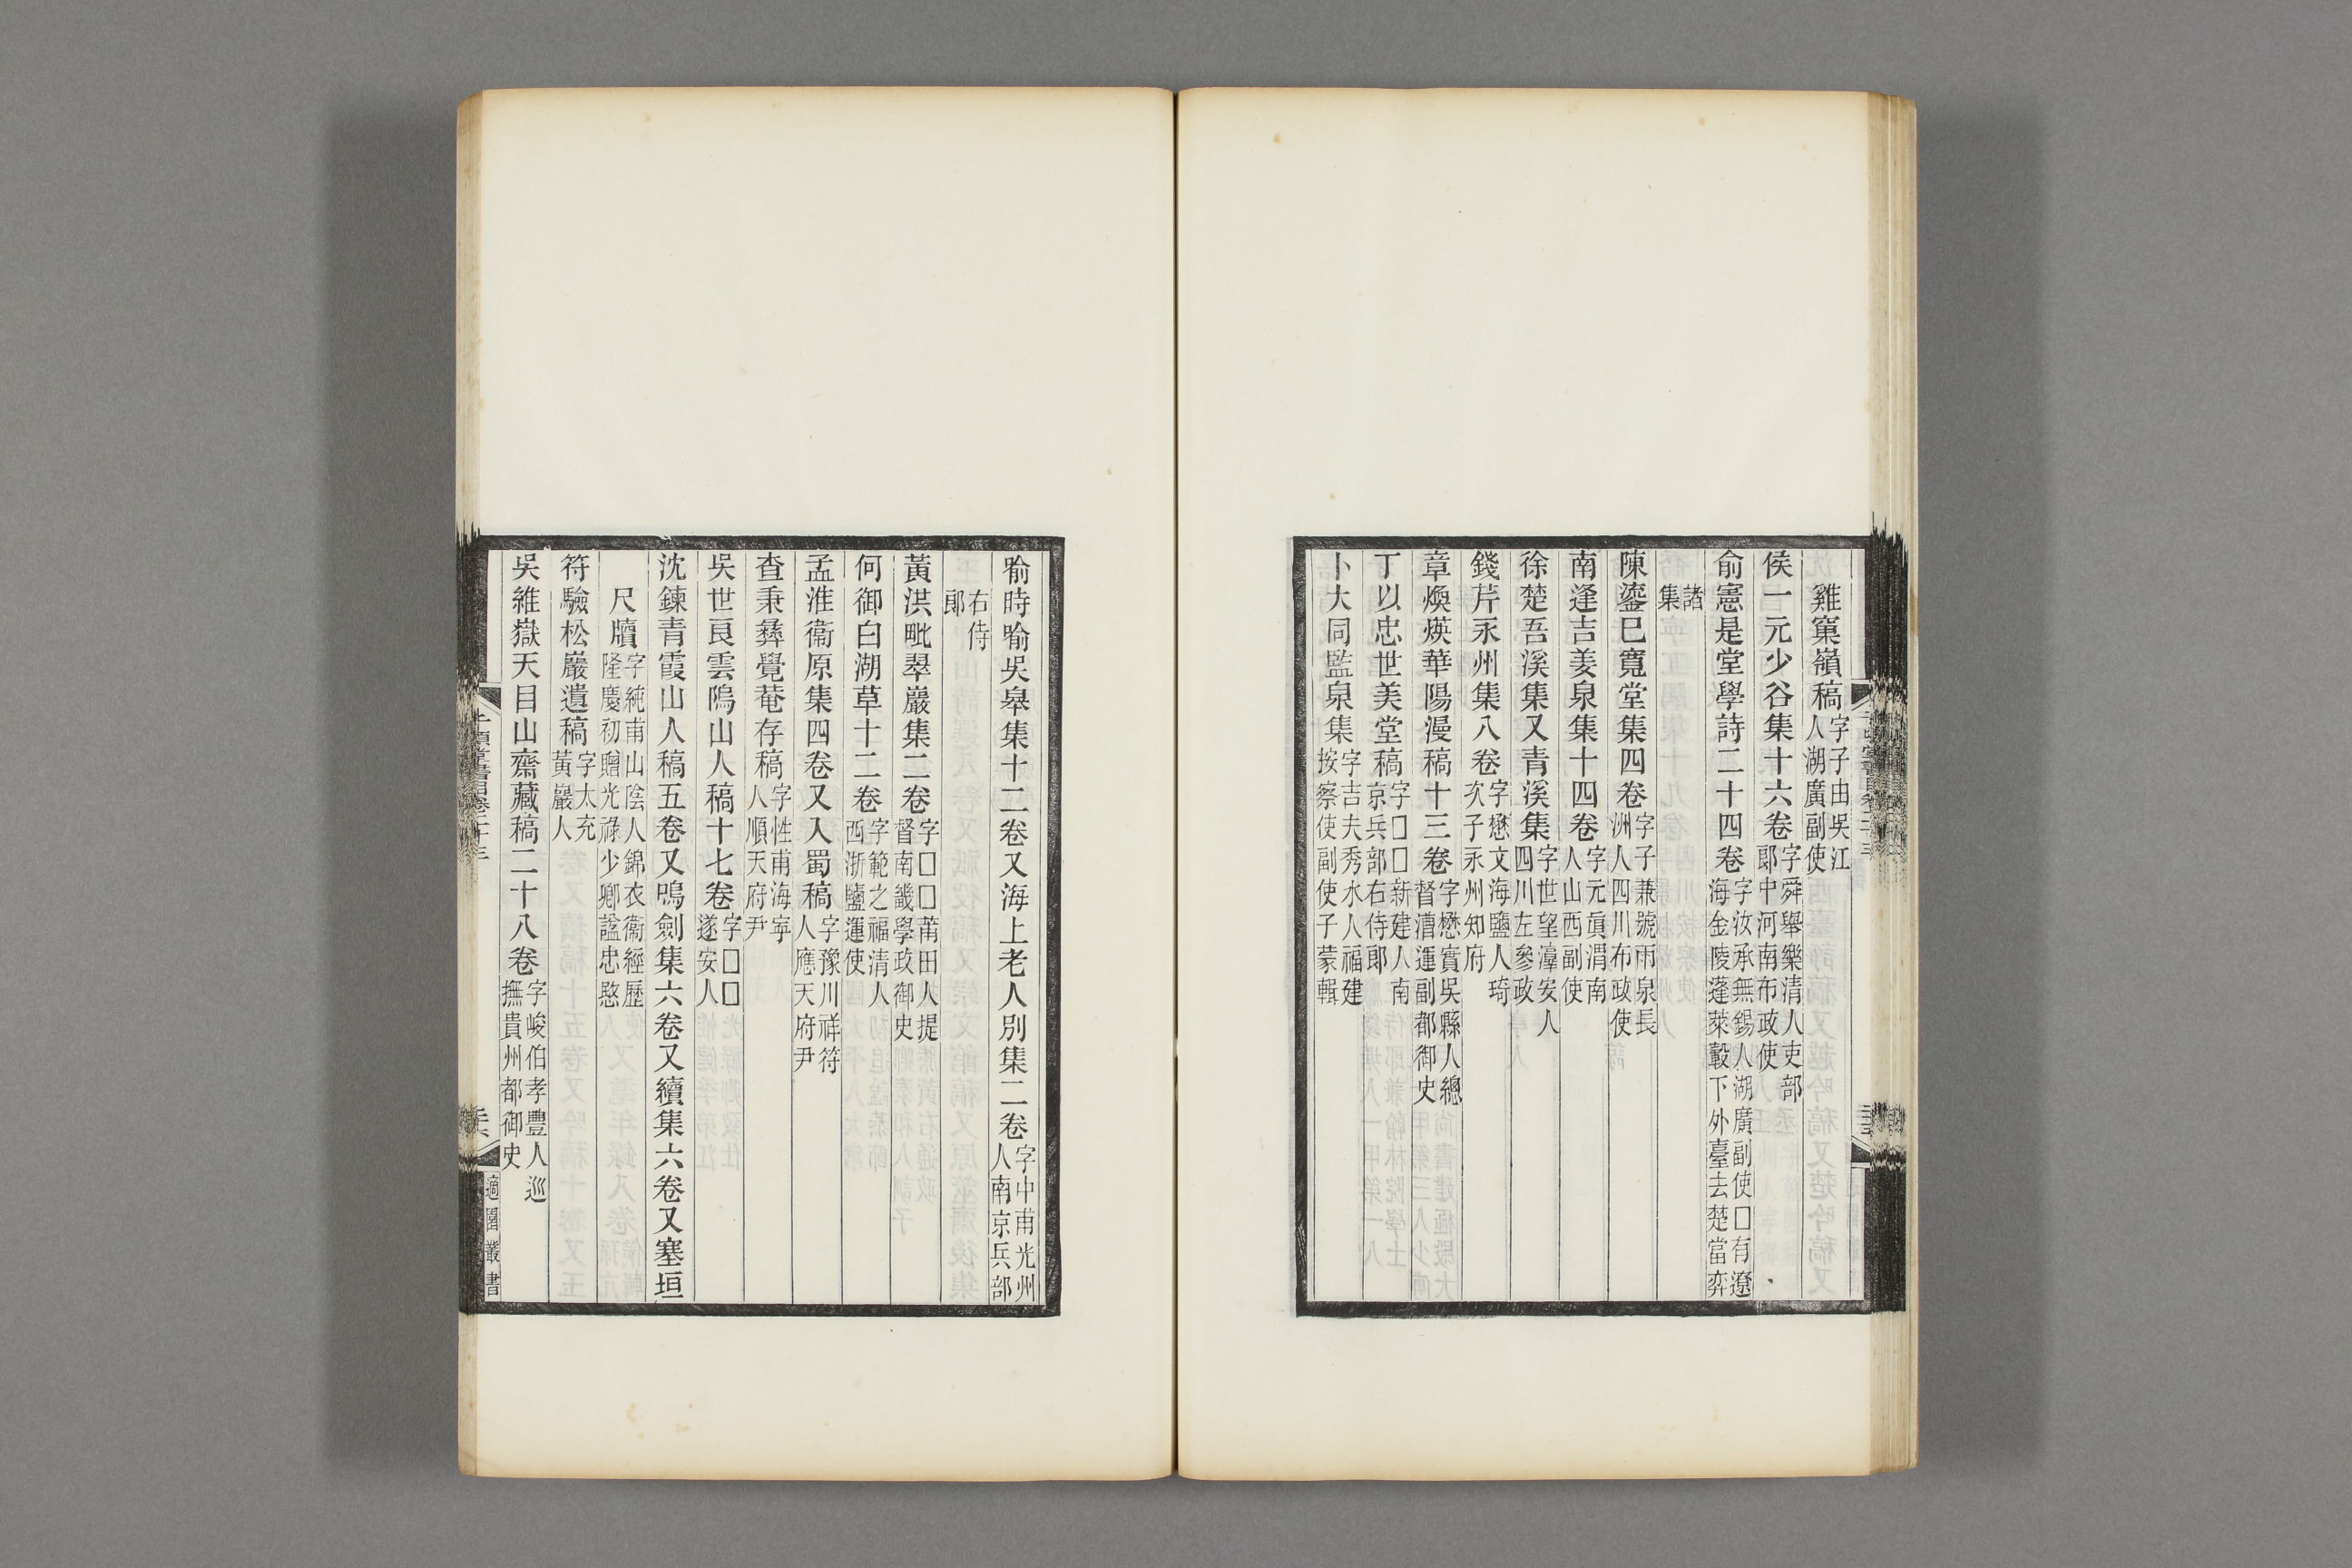 雞窠嶺稿字子由吳江人湖廣副使
侯一元少谷集十六卷字舜舉樂清人吏部郎中河南布政使
俞憲是堂學詩二十四卷字汝承無錫人湖廣副使□有遼海金陵蓬萊轂下外臺去楚當弈
諸集
陳鎏巳寬堂集四卷字子兼號雨泉長洲人四川布政使
南逢吉姜泉集十四卷字元眞渭南人山西副使
徐楚吾溪集又青溪集字世望淳安人四川左參政
錢芹永州集八卷字懋文海鹽人琦次子永州知府
章煥煐華陽漫稿十三卷字懋實吳縣人總督漕運副都御史
丁以忠世美堂稿字□□新建人南京兵部右侍郎
卜大同監泉集字吉夫秀水人福建按察使副使子蒙輯
喻時喻吳皋集十二卷又海上老人別集二卷字中甫光州人南京兵部
右侍郎
黃洪毗翠巖集二卷字□□莆田人提督南畿學政御史
何御白湖草十二卷字範之福清人西浙鹽運使
孟淮衞原集四卷又入蜀稿字豫川祥符人應天府尹
查秉彝覺菴存稿字性甫海寧人順天府尹
吳世良雲隖山人稿十七卷字□□遂安人
沈鍊青霞山人稿五卷又鳴劍集六卷又續集六卷又塞垣
尺牘字純甫山陰人錦衣衞經歷隆慶初贈光祿少卿諡忠愍
符驗松巖遺稿字太充黃巖人
吳維嶽天目山齋藏稿二十八卷字峻伯孝豐人巡撫貴州都御史
適園叢書